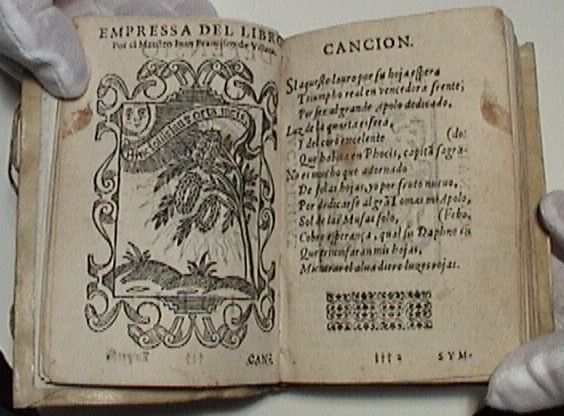 EMPRESSA DEL LIBRO
Por el Maestro Iuan Francisco de Villava.
CANC.
CANCION.
SI aqueste lauro por su hoja espera
Triumpho real en vencedora frente,
Por ser al grande Apolo dedicado,
Luz de la quarta esfera,
Y del coro excelente (do:
Que habita en Phocis, capitã sagra-
No es mucho que adornado
De solas hojas, yo por fruto nueuo,
Por dedicarse al grã Tomas mi Apolo,
Sol de las Musas solo, (Febo,
Cobre esperança, qual su Daphne en
Que triunfaran mis hojas,
Mientras el alua diere luzes rojas.
SYM-